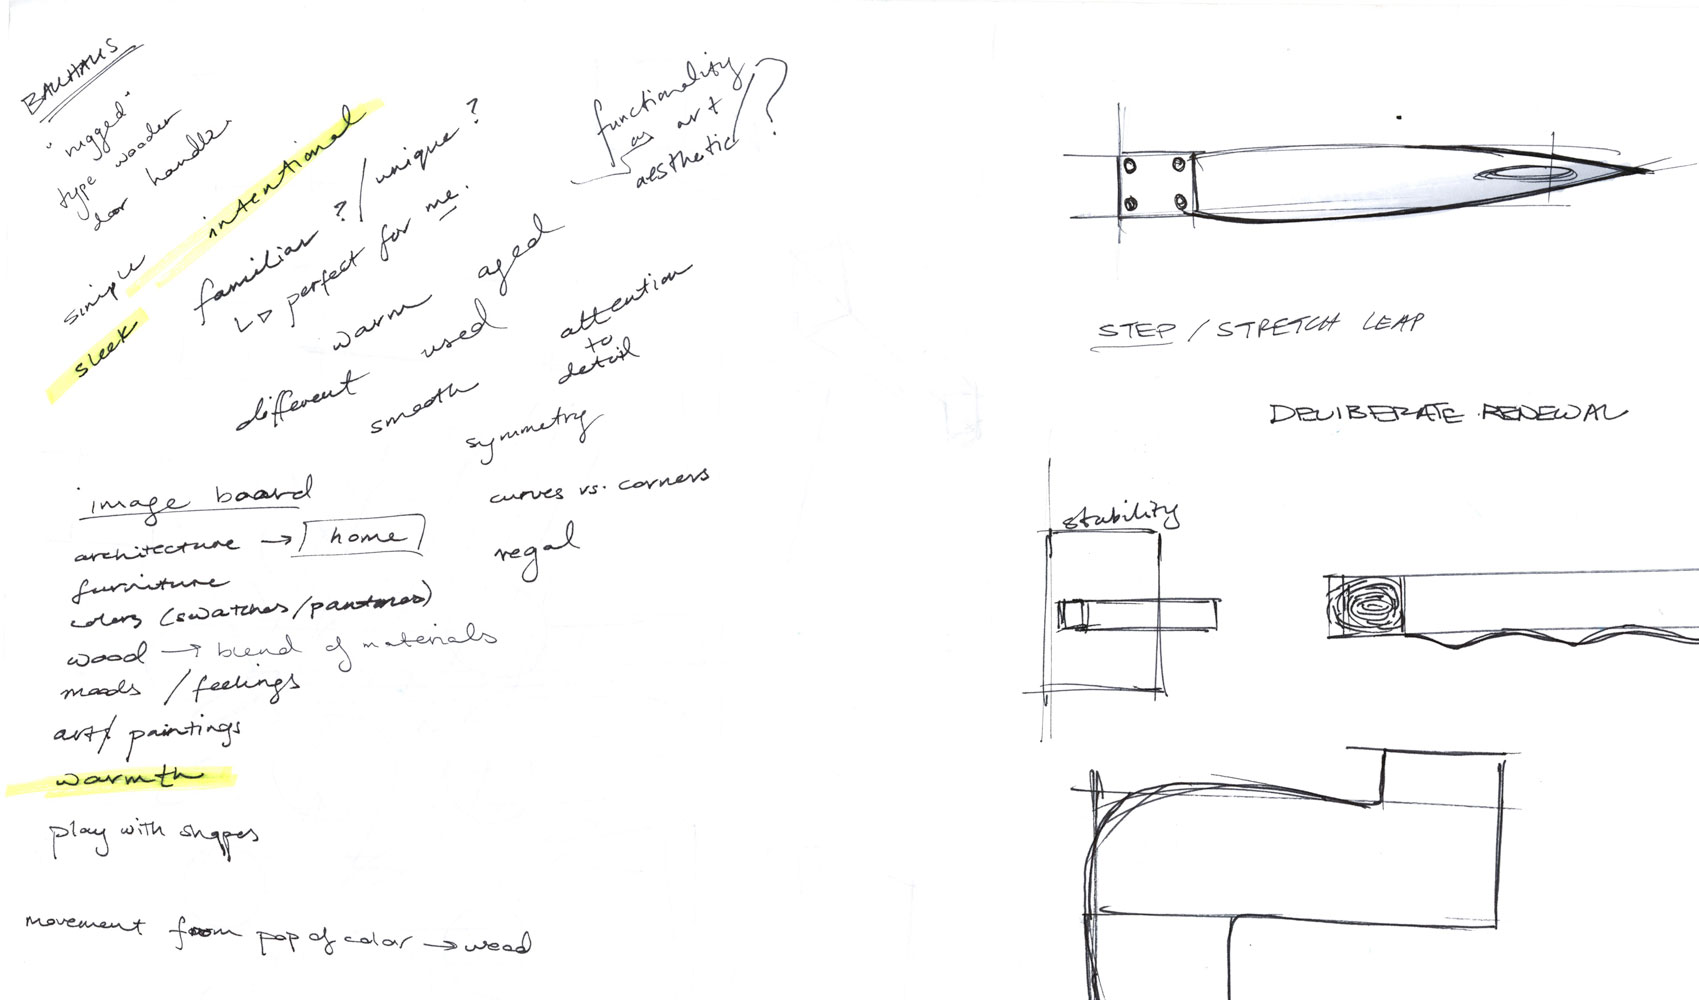 BAUHAUS
"rugged"
type wooden
door handle.
simple
intentional
sleek
familiar ? / unique ?
↳ perfect for me.
functionality
as art
aesthetic / ?
warm
aged
different
used
smooth
attention
to
detail
symmetry
curves vs. corners
regal
image board
architecture → home
furniture
colors (swatches/pantones)
wood → blend of materials
moods / feelings
art/ paintings
warmth
play with shapes
movement from pop of color → wood
STEP / STRETCH LEAP
DELIBERATE RENEWAL
stability